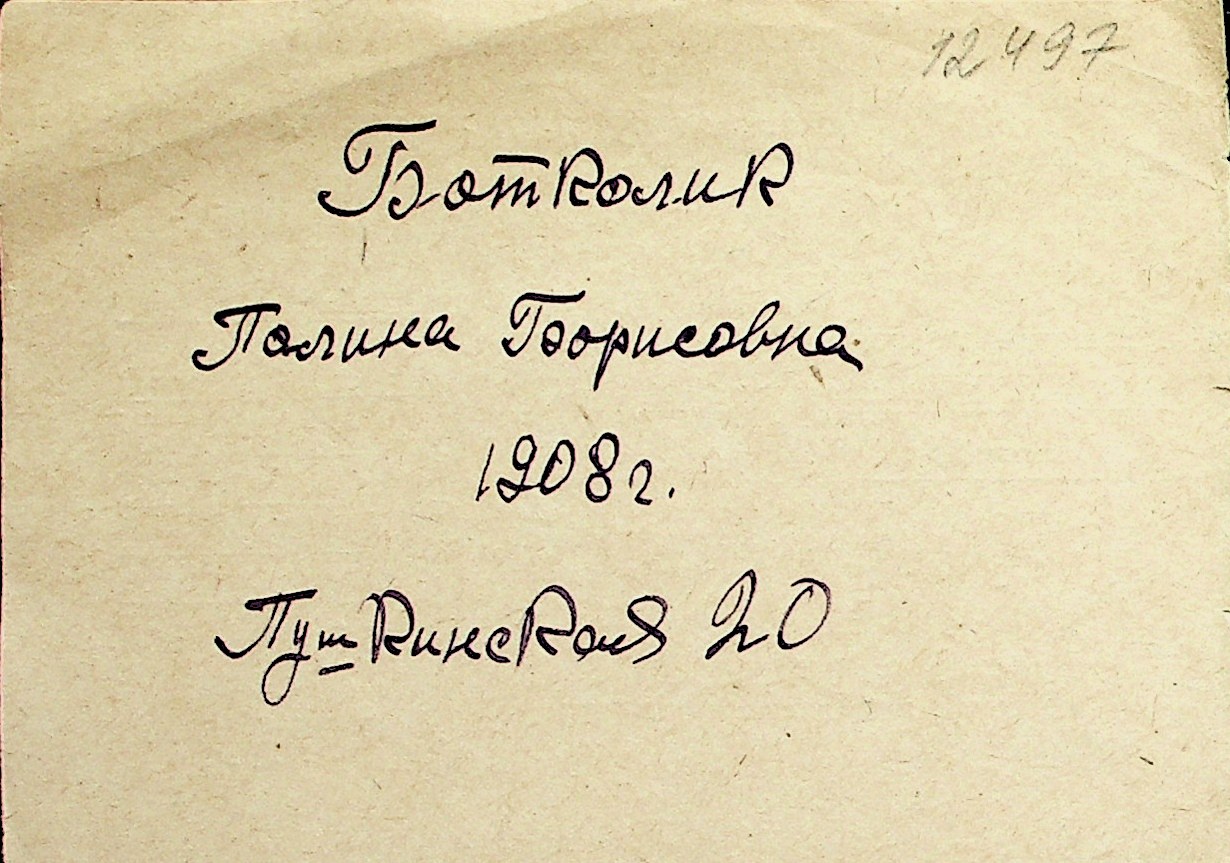 12497
Ботколик
Полина Борисовна
1908 г.
Пушкинская 20